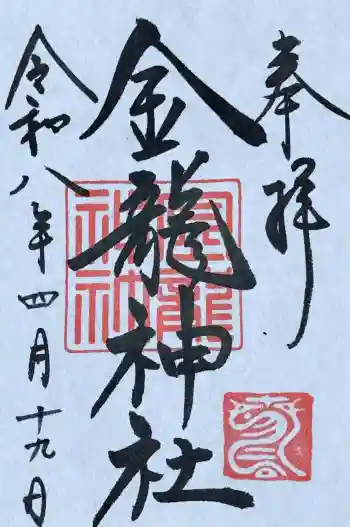 奉拝
金龍神社
令和八年四月十九日
金龍
神社